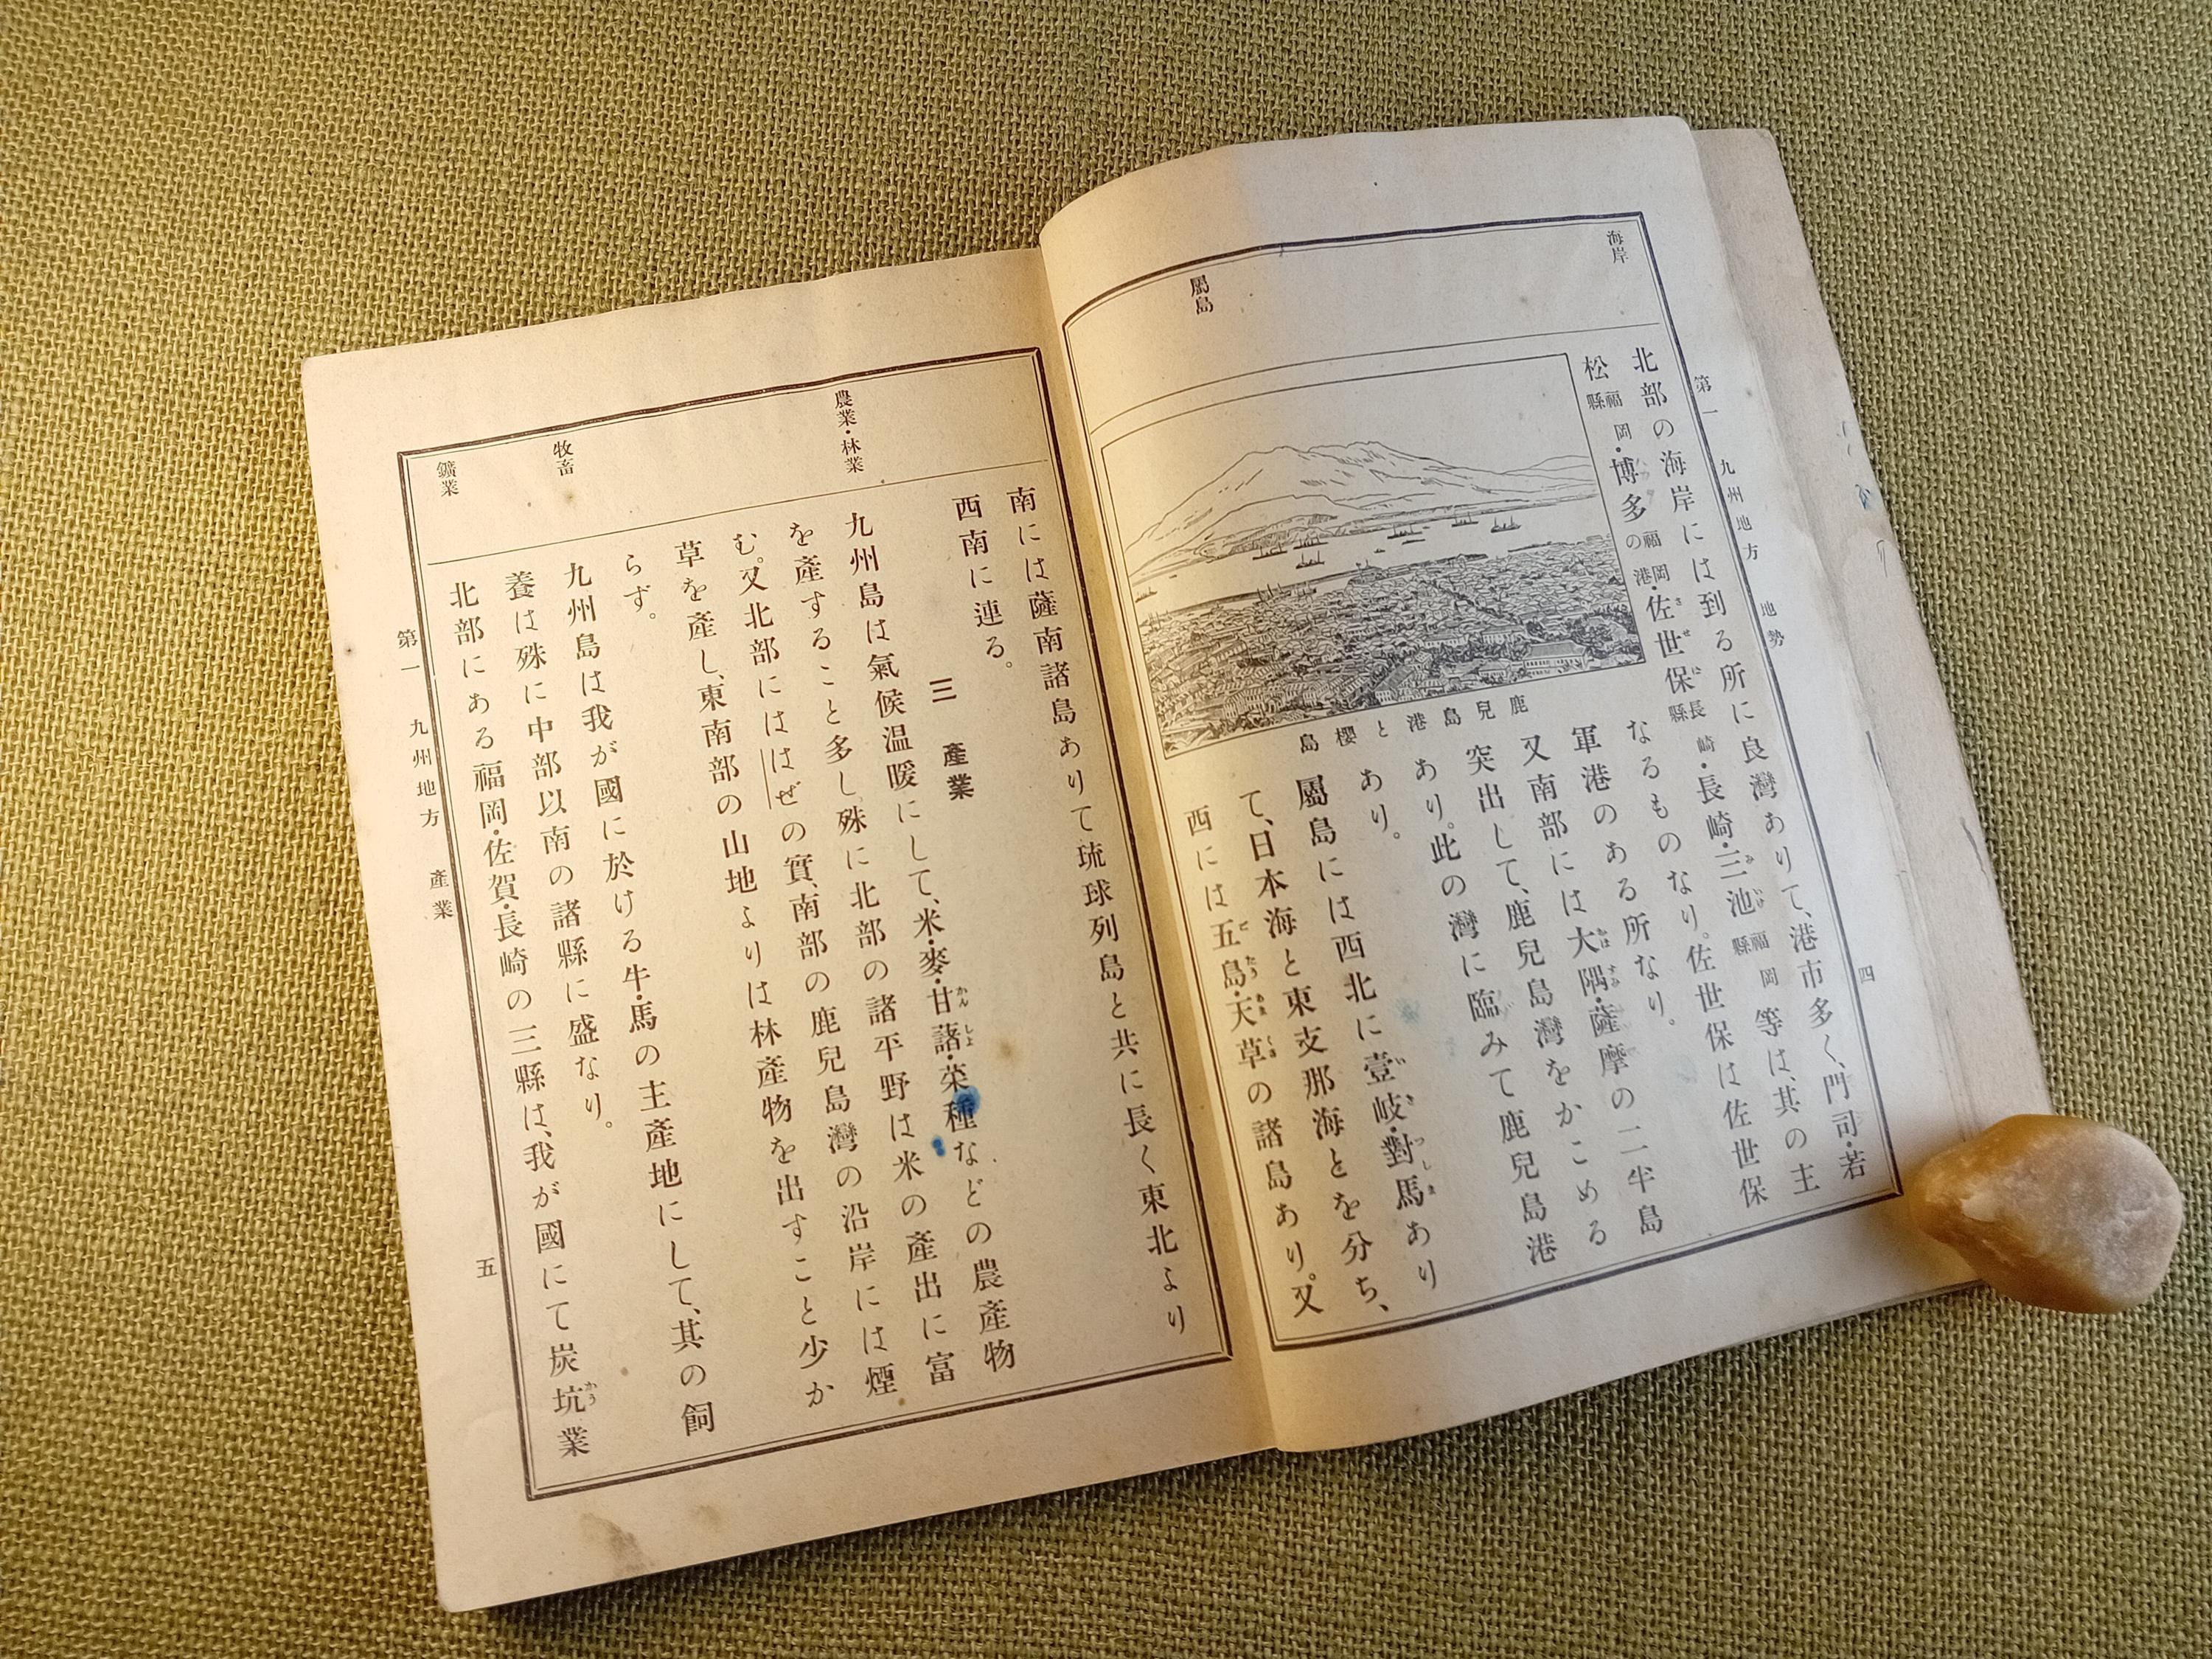 第一 九州地方 地勢 四
海岸
北部の海岸には到る所に良灣ありて、港市多く、門司・若
松福岡縣・博多福岡の港・佐世保長崎縣・長崎・三池福岡縣等は、其の主
なるものなり。佐世保は佐世保
軍港のある所なり。
又南部には大隅・薩摩の二半島
突出して、鹿兒島灣をかこめる
あり。此の灣に臨みて鹿兒島港
あり。
鹿兒島港と櫻島
屬島
屬島には西北に壹岐・對馬あり
て、日本海と東支那海とを分ち、
西には五島・天草の諸島あり。又
南には薩南諸島ありて琉球列島と共に長く東北より
西南に連る。
三 產業
農業・林業
九州島は氣候温暖にして、米・麥・甘藷・菜種などの農產物
を產すること多し。殊に北部の諸平野は米の產出に富
む。又北部にははぜの實、南部の鹿兒島灣の沿岸には煙
草を產し、東南部の山地よりは林產物を出すこと少か
らず。
牧畜
九州島は我が國に於ける牛・馬の主產地にして、其の飼
養は殊に中部以南の諸縣に盛なり。
鑛業
北部にある福岡・佐賀・長崎の三縣は、我が國にて炭坑業
第一 九州地方 產業 五